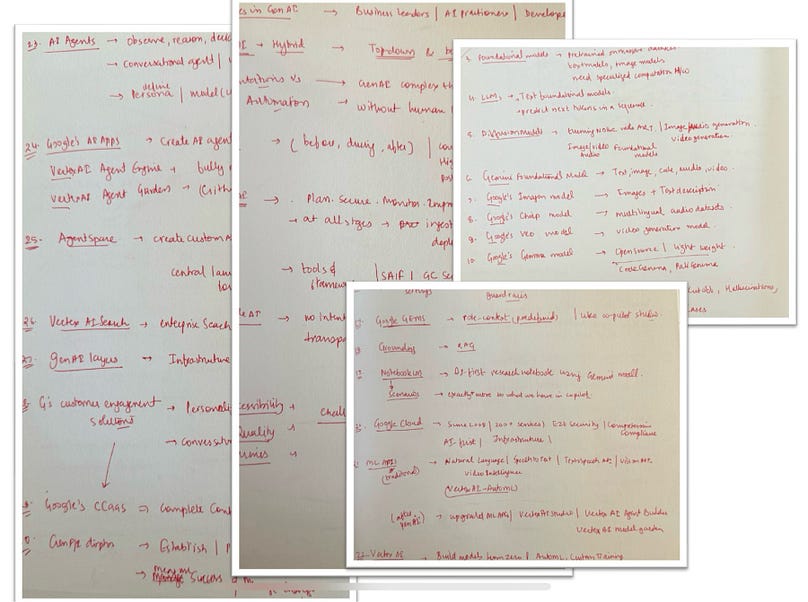 23. AI Agents → observe, reason,
→ conversational agent |
define
→ Persona | model
24. Google's AI Apps → Create AI agent
Vertex AI Agent Engine +
Vertex AI Agent Garden →
25. Agentspace → create custom A
central
26. Vertex AI Search → enterprise Search
27. GenAI layers → Infrastructure
G's customer engagement → Personali
solutions
→ conversat
Google's CCaaS ⇒ Complete Cont
⇒ Establish |
→ Manage success
es in GenAI → Business Leaders | AI Practioners | Develope
+ Hybrid → Topdown & b
vs → GenAI complex th
Automation → without human
→ (before, during, after) |
→ . Plan. Secure. Monitor. Impr
→ at all stages → ingest
→ tools & | SAIF | GC Se
→ no intent
transpa
Quality
3. Foundational models → Pretrained on massive datasets
text models, image models
need specialized computation
4. LLMs → Text foundational models.
→ predict next tokens in a sequence.
5. Diffusion Models → turning Noise into ART. | Image/Audio generation
video generation.
Image/video Foundational
audio models
6. Gemini Foundational Model → Text, image, code, audio, video.
7. Google's Imagen model → Images + Text description.
8. Google's Chirp model → multilingual audio datasets.
9. Google's Veo model → video generation model.
10. Google's Gemma model → Open source | light weight.
CodeGemma, PaliGemma
Hallucinations,
settings
Google GEMS → role-context (predefined) | like co-pilot studio.
Grounding → RAG
NotebookLM → AI-first research notebook using Gemini modell.
Scenarios → exactly same to what we have in copilot.
Google Cloud → | 200+ services | E2E Security | Comprehensive
Compliance
AI-first | Infrastructure |
ML APIs → Natural Language | Speech to Text | Text speech API | Vision API.
(traditional) video Intelligence
(Vertex AI - AutoML)
(after genAI) → upgraded ML APIs | Vertex AI studio | Vertex AI Agent Builder
Vertex AI model garden
22. Vertex AI → Build models from zero | AutoML, Custom Training